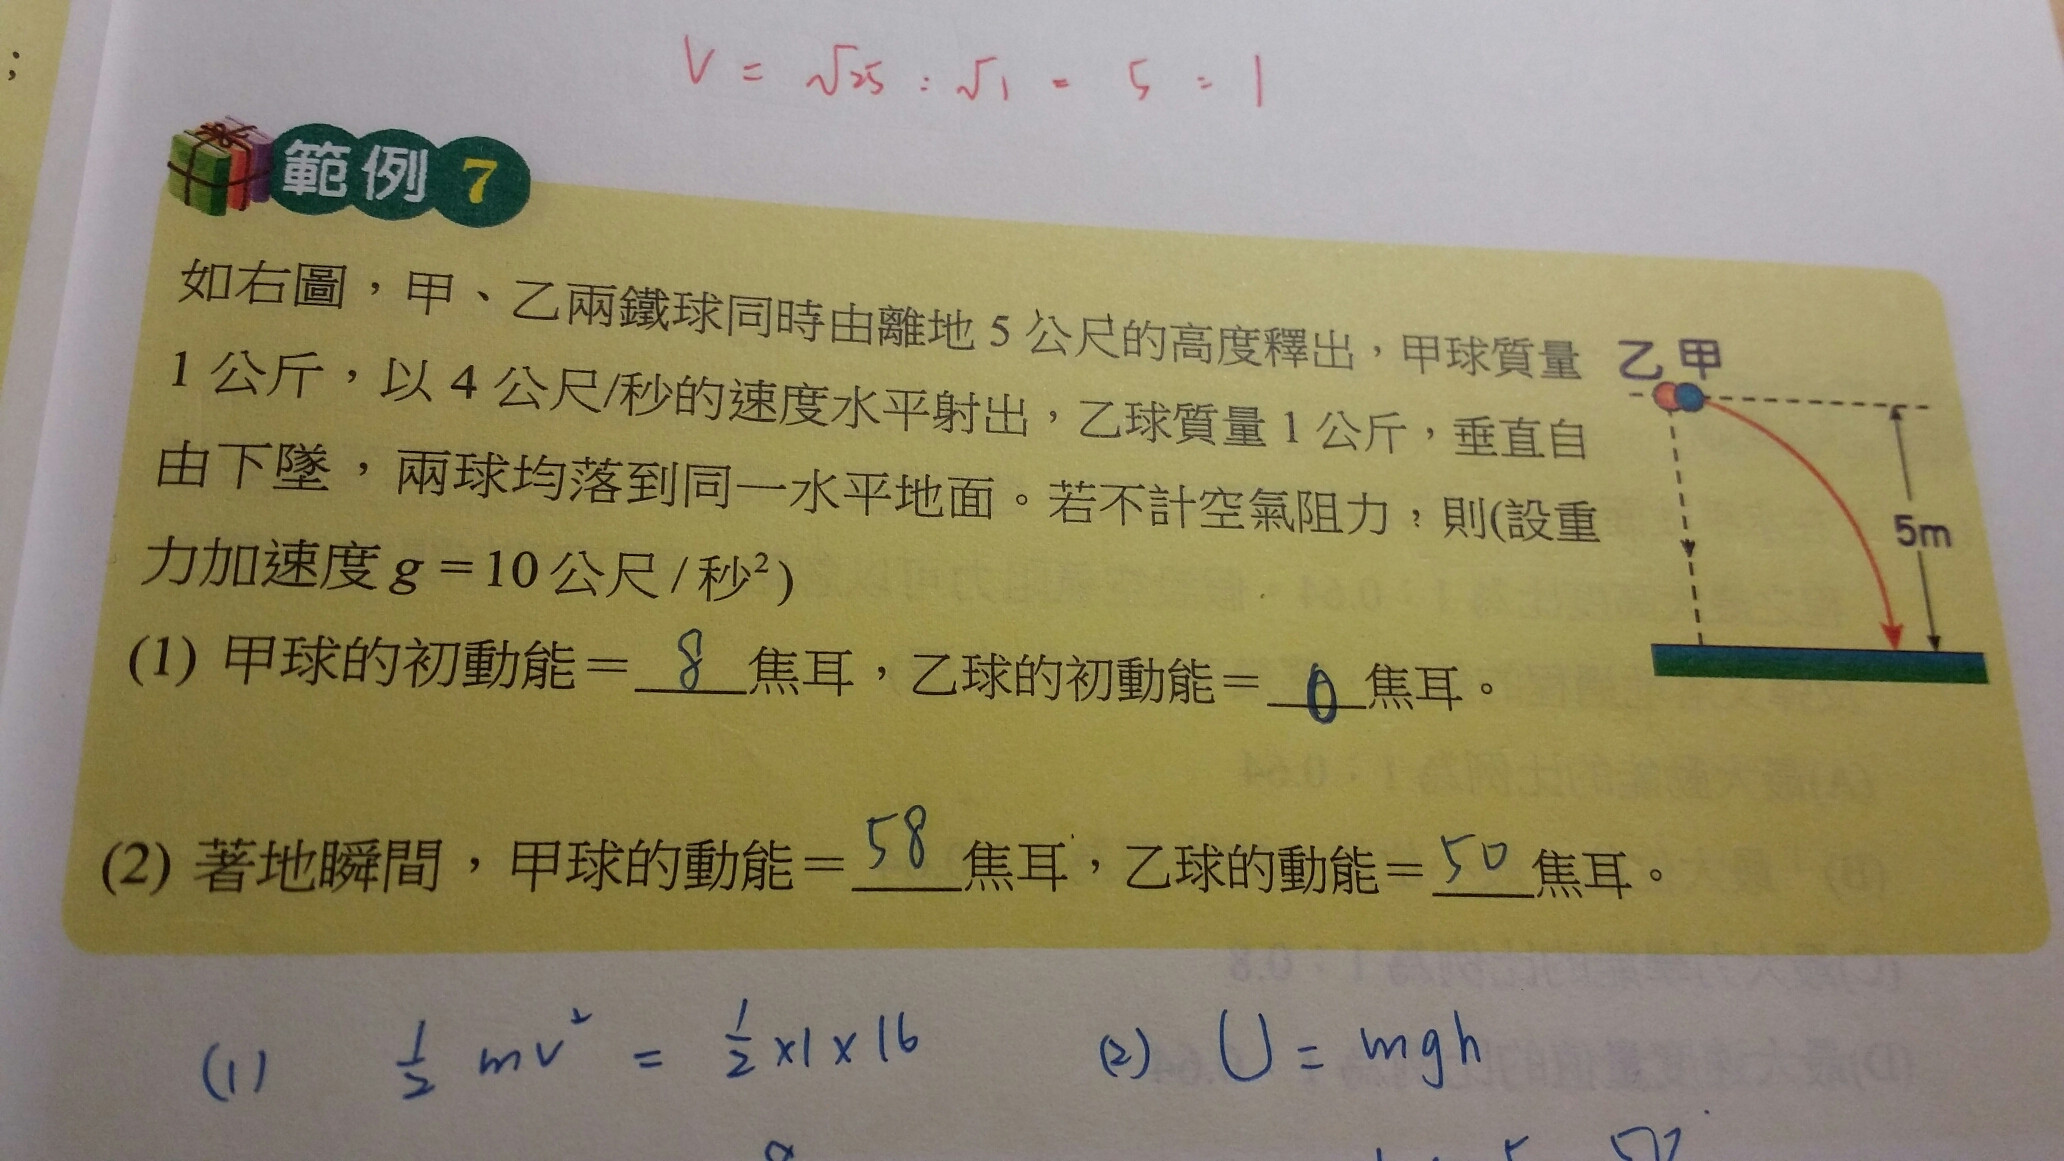 V = √25 : √1 = 5 : 1
範例 7
如右圖，甲、乙兩鐵球同時由離地 5 公尺的高度釋出，甲球質量
1 公斤，以 4 公尺/秒的速度水平射出，乙球質量 1 公斤，垂直自
由下墜，兩球均落到同一水平地面。若不計空氣阻力，則(設重
力加速度 g = 10 公尺 / 秒²)
乙 甲
5m
(1) 甲球的初動能＝ 8 焦耳，乙球的初動能＝ 0 焦耳。
(2) 著地瞬間，甲球的動能＝ 58 焦耳，乙球的動能＝ 50 焦耳。
(1) ½ mv² = ½ ×1×16
(2) U = mgh